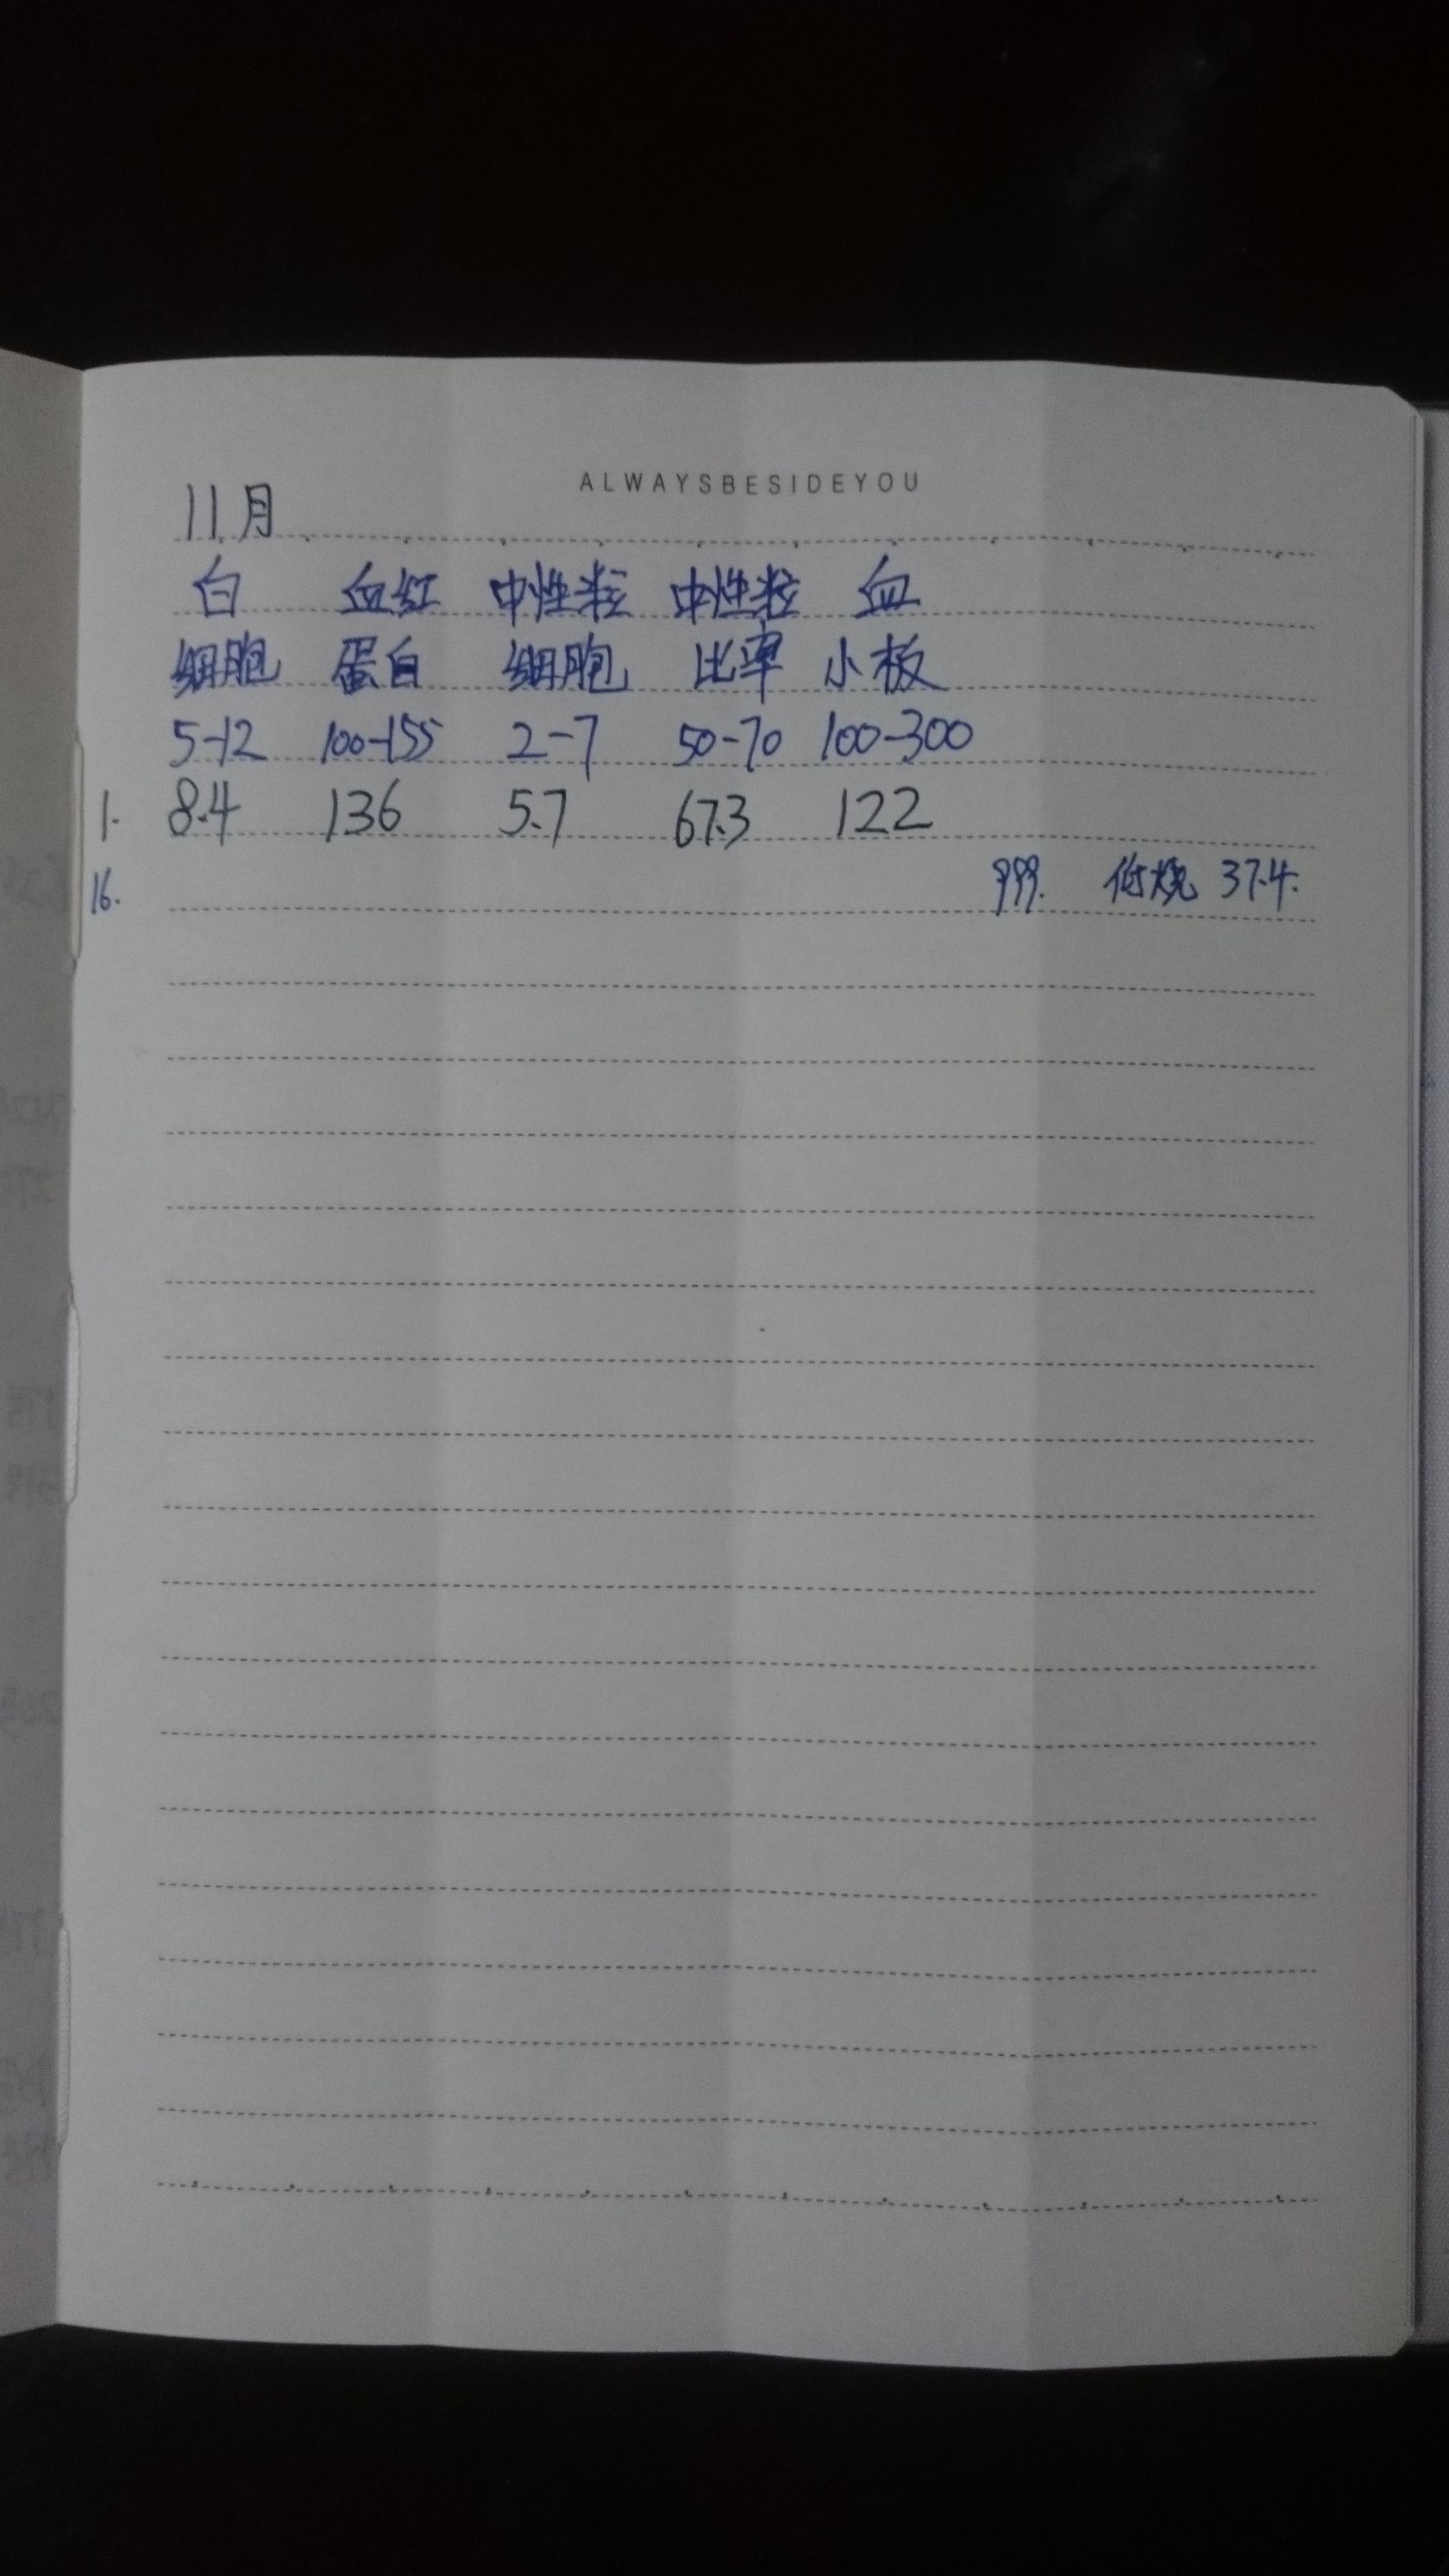 ALWAYSBESIDEYOU
11月
白 血红 中性粒 中性粒 血
细胞 蛋白 细胞 比率 小板
5-12 100-155 2-7 50-70 100-300
1. 8.4 136 5.7 67.3 122
16. 999. 低烧 37.4.